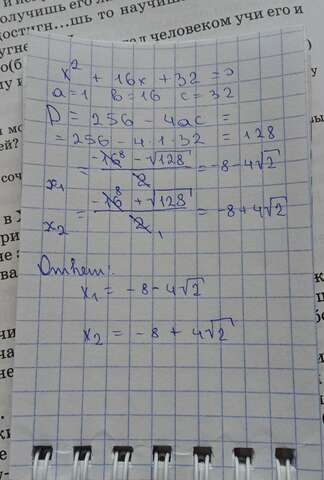 получишь его
достигн...шь то научиш
од человеком учи его и
x² + 16x + 32 = 0
a = 1 b = 16 c = 32
D = 256 - 4ac =
= 256 - 4·1·32 = 128
x₁ = (-16 8 - √128)/2 = -8 - 4√2
x₂ = (-16 8 + √128)/2 1 = -8 + 4√2
Ответ:
x₁ = -8 - 4√2
x₂ = -8 + 4√2